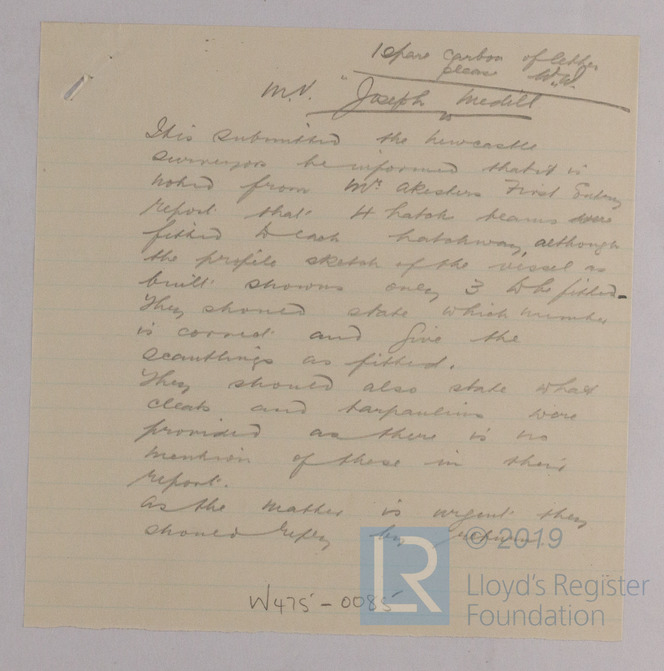 1 spare carbon of letter
please W.W.
M.V. "Joseph Medill"
It is submitted the Newcastle
Surveyors be informed that it is
noted from Mr Akesters First Entry
report that 4 hatch beams were
fitted to each hatchway, although
the profile sketch of the vessel as
built shows only 3 to be fitted.
They should state which number
is correct and give the
scantlings as fitted.
They should also state what
cleats and tarpaulins were
provided as there is no
mention of these in their
report.
As the matter is urgent they
should reply by return.
W475-0085
© 2019
LR
Lloyd's Register
Foundation